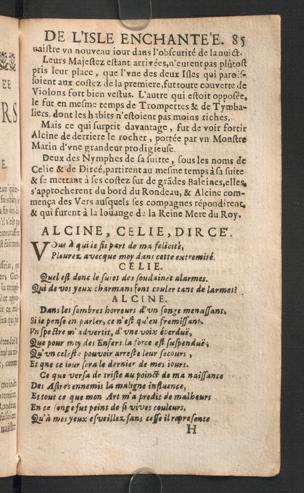 DE L'ISLE ENCHANTE'E. 85
naistre vn nouveau iour dans l'obscurité de la nuict.
Leurs Majestez estant arrivées, n'eurent pas plûtost
pris leur place, que l'vne des deux Isles qui parois-
soient aux costez de la premiere, fut toute couverte de
Violons fort bien vestus. L'autre qui estoit opposée,
le fut en mesme temps de Trompettes & de Tymba-
liers, dont les habits n'estoient pas moins riches.
Mais ce qui surprit davantage, fut de voir sortir
Alcine de derriere le rocher, portée par vn Monstre
Marin d'vne grandeur prodigieuse.
Deux des Nymphes de sa suitte, sous les noms de
Celie & de Dircé, partirent au mesme temps à sa suite
& se mettant à ses costez sur de grãdes Baleines, elles
s'approcherent du bord du Rondeau, & Alcine com-
mença des Vers ausquels ses compagnes répondirent,
& qui furent à la loüange de la Reine Mere du Roy.
ALCINE, CELIE, DIRCE'.
Vous à qui ie fis part de ma felicité,
Pleurez avecque moy dans cette extremité.
CELIE.
Quel est donc le sujet des soudaines alarmes,
Qui de vos yeux charmans font couler tant de larmes?
ALCINE.
Dans les sombres horreurs d'vn songe menassant,
Si ie pense en parler, ce n'est qu'en fremissant.
Vn spectre m'advertit, d'vne voix éperduë,
Que pour moy des Enfers la force est suspenduë;
Qu'vn celeste pouvoir arreste leur secours,
Et que ce iour sera le dernier de mes iours.
Ce que versa de triste au poinct de ma naissance
Des Astres ennemis la maligne influence,
Et tout ce que mon Art m'a predit de malheurs
En ce songe fut peint de si vives couleurs,
Qu'à mes yeux esveillez sans cesse il represente
H